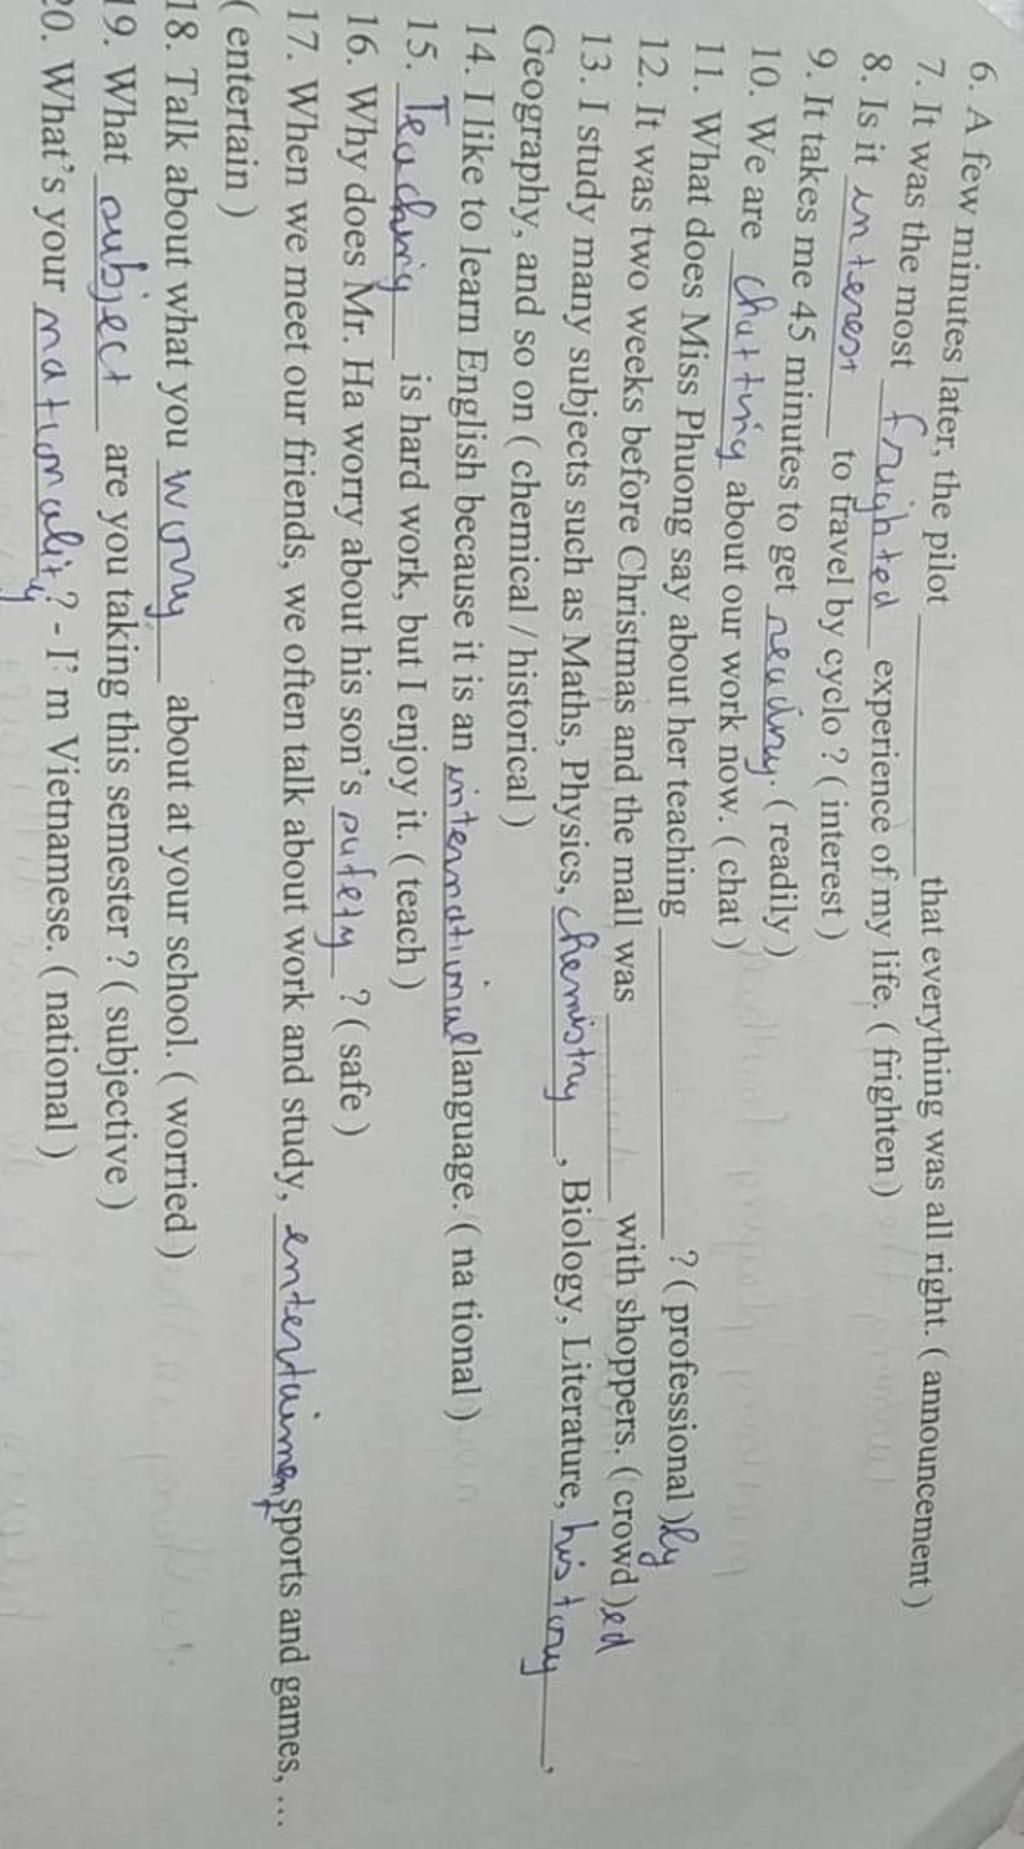 6. A few minutes later, the pilot ________ that everything was all right. ( announcement )
7. It was the most frighted experience of my life. ( frighten )
8. Is it interest to travel by cyclo ? ( interest )
9. It takes me 45 minutes to get ready. ( readily )
10. We are chatting about our work now. ( chat )
11. What does Miss Phuong say about her teaching ________ ? ( professional )ly
12. It was two weeks before Christmas and the mall was ________ with shoppers. ( crowd )ed
13. I study many subjects such as Maths, Physics, chemistry, Biology, Literature, history,
Geography, and so on ( chemical / historical )
14. I like to learn English because it is an international language. ( na tional )
15. Teaching is hard work, but I enjoy it. ( teach )
16. Why does Mr. Ha worry about his son's safety ? ( safe )
17. When we meet our friends, we often talk about work and study, entertaiment sports and games, ...
( entertain )
18. Talk about what you worry about at your school. ( worried )
19. What subject are you taking this semester ? ( subjective )
20. What's your nationality ? - I' m Vietnamese. ( national )